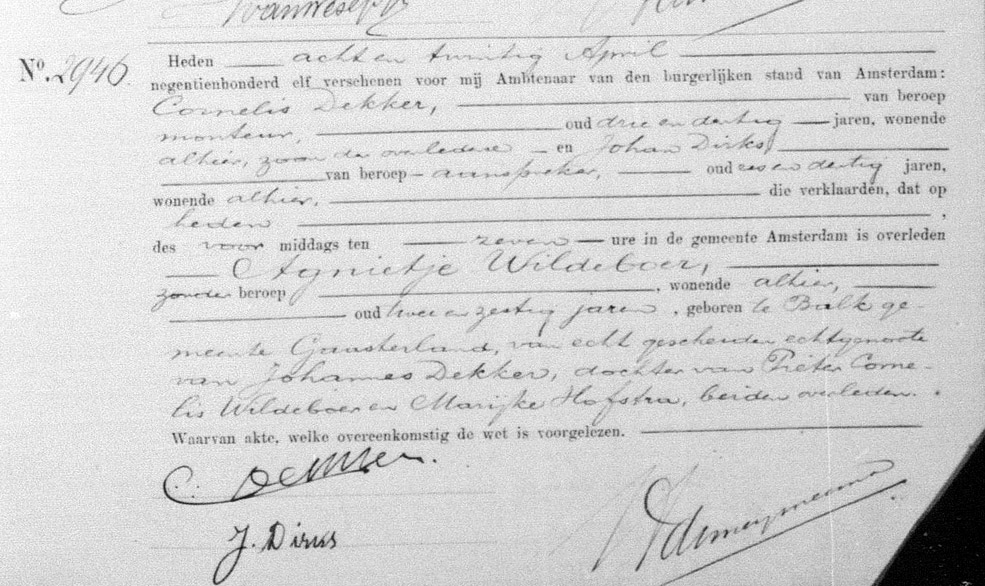 No. 2946. Heden achten twintig April
negentienhonderd elf verschenen voor mij Ambtenaar van den burgerlijken stand van Amsterdam:
Cornelis Dekker, van beroep
monteur, oud drie en dertig jaren, wonende
alhier, zoon der overledene en Johan Dirks,
van beroep aanspreker, oud en dertig jaren,
wonende alhier, die verklaarden, dat op
heden ,
des voor middags ten zeven ure in de gemeente Amsterdam is overleden
Agnietje Wildeboer,
zonder beroep , wonende alhier,
oud twee en zestig jaren , geboren te Balk ge-
meente Gaasterland, van echt gescheiden echtgenoote
van Johannes Dekker, dochter van Pieter Corne-
lis Wildeboer en Marijke Hofstra, beiden overleden.
Waarvan akte, welke overeenkomstig de wet is voorgelezen.
C. Dekker.
J. Dirks